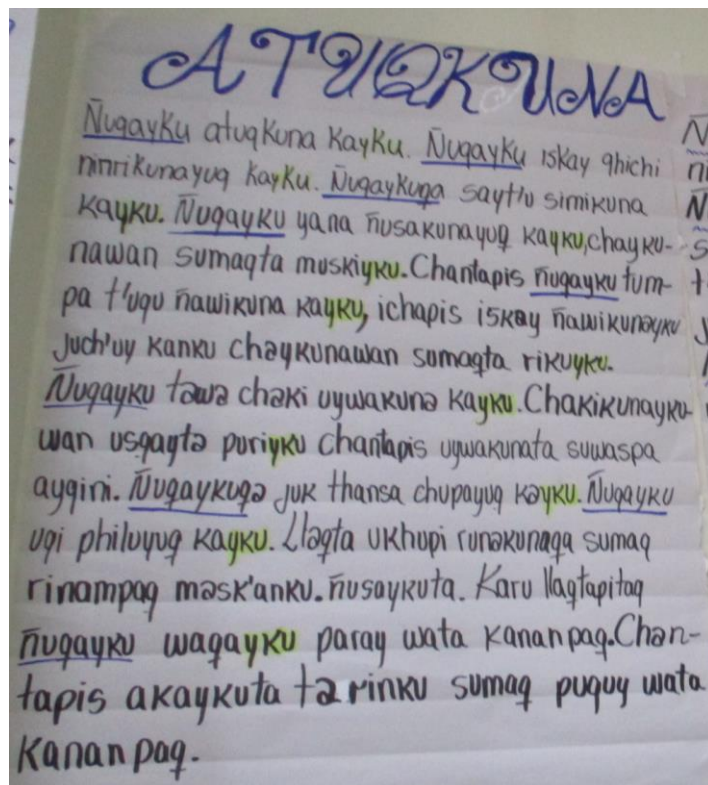 ATUQKUNA
Ñuqayku atuqkuna kayku. Ñuqayku iskay qhichi
ninrikunayuq kayku. Ñuqaykuqa sayt'u simikuna
kayku. Ñuqayku yana ñusakunayuq kayku, chayku-
nawan sumaqta muskiyku. Chantapis ñuqayku tum-
pa t'uqu ñawikuna kayku, ichapis iskay ñawikunayku
juch'uy kanku chaykunawan sumaqta rikuyku.
Ñuqayku tawa chaki uywakuna kayku. Chakikunayku-
wan usqayta puriyku chantapis uywakunata suwaspa
ayqini. Ñuqaykuqa juk thansa chupayuq kayku. Ñuqayku
uqi philuyuq kayku. Llaqta ukhupi runakunaqa sumaq
rinampaq mask'anku. ñusaykuta. Karu llaqtapitaq
ñuqayku waqayku paray wata kananpaq. Chan-
tapis akaykuta tarinku sumaq puquy wata
kananpaq.